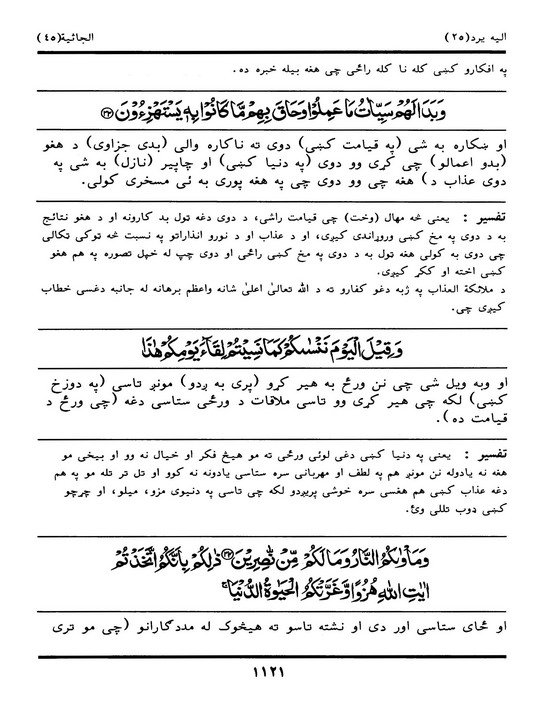 الیه یرد(۲۵) الجاثیة(٤٥)
په افکارو کښی کله نا کله راځی چی هغه بیله خبره ده.
وَبَدَا لَهُمْ سَيِّاٰتُ مَا عَمِلُوْا وَحَاقَ بِهِمْ مَّا كَانُوْا بِهٖ يَسْتَهْزِءُوْنَ ﴿۳۳﴾
او ښکاره به شی (په قیامت کښی) دوی ته ناکاره والی (بدی جزاوی) د هغو
(بدو اعمالو) چی کړی وو دوی (په دنیا کښی) او چاپیر (نازل) به شی په
دوی عذاب د) هغه چی وو دوی چی په هغه پوری به ئی مسخری کولی.
تفسیر : یعنی څه مهال (وخت) چی قیامت راشی، د دوی دغه ټول بد کارونه او د هغو نتائج
به د دوی په مخ کښی وروړاندی کیږی، او د عذاب او د نورو انذاراتو په نسبت څه ټوکی ټکالی
چی دوی به کولی هغه ټول به د دوی په مخ کښی راځی او دوی چپ له خپل تصوره په هم هغو
کښی اخته او ککړ کیږی.
د ملائکة العذاب په ژبه دغو کفارو ته د الله تعالیٰ اعلیٰ شانه واعظم برهانه له جانبه دغسی خطاب
کیږی چی.
وَقِيْلَ الْيَوْمَ نَنْسٰىكُمْ كَمَا نَسِيْتُمْ لِقَآءَ يَوْمِكُمْ هٰذَا
او وبه ویل شی چی نن ورځ به هیر کړو (پری به ږدو) مونږ تاسی (په دوزخ
کښی) لکه چی هیر کړی وو تاسی ملاقات د ورځی ستاسی دغه (چی ورځ د
قیامت ده).
تفسیر : یعنی په دنیا کښی دغی لوئی ورځی ته مو هیڅ فکر او خیال نه وو او بیخی مو
هغه نه یادوله نن مونږ هم په لطف او مهربانی سره ستاسی یادونه نه کوو او تل تر تله مو په هم
دغه عذاب کښی هم هغسی سره خوشی پریږدو لکه چی تاسی په دنیوی مزو، میلو، او چړچو
کښی ډوب تللی وئ.
وَمَاْوٰىكُمُ النَّارُ وَمَا لَكُمْ مِّنْ نّٰصِرِيْنَ ﴿۳۴﴾ ذٰلِكُمْ بِاَنَّكُمُ اتَّخَذْتُمْ
اٰيٰتِ اللّٰهِ هُزُوًا وَّغَرَّتْكُمُ الْحَيٰوةُ الدُّنْيَا ۚ
او ځای ستاسی اور دی او نشته تاسو ته هیڅوک له مددګارانو (چی مو تری
۱۱۲۱